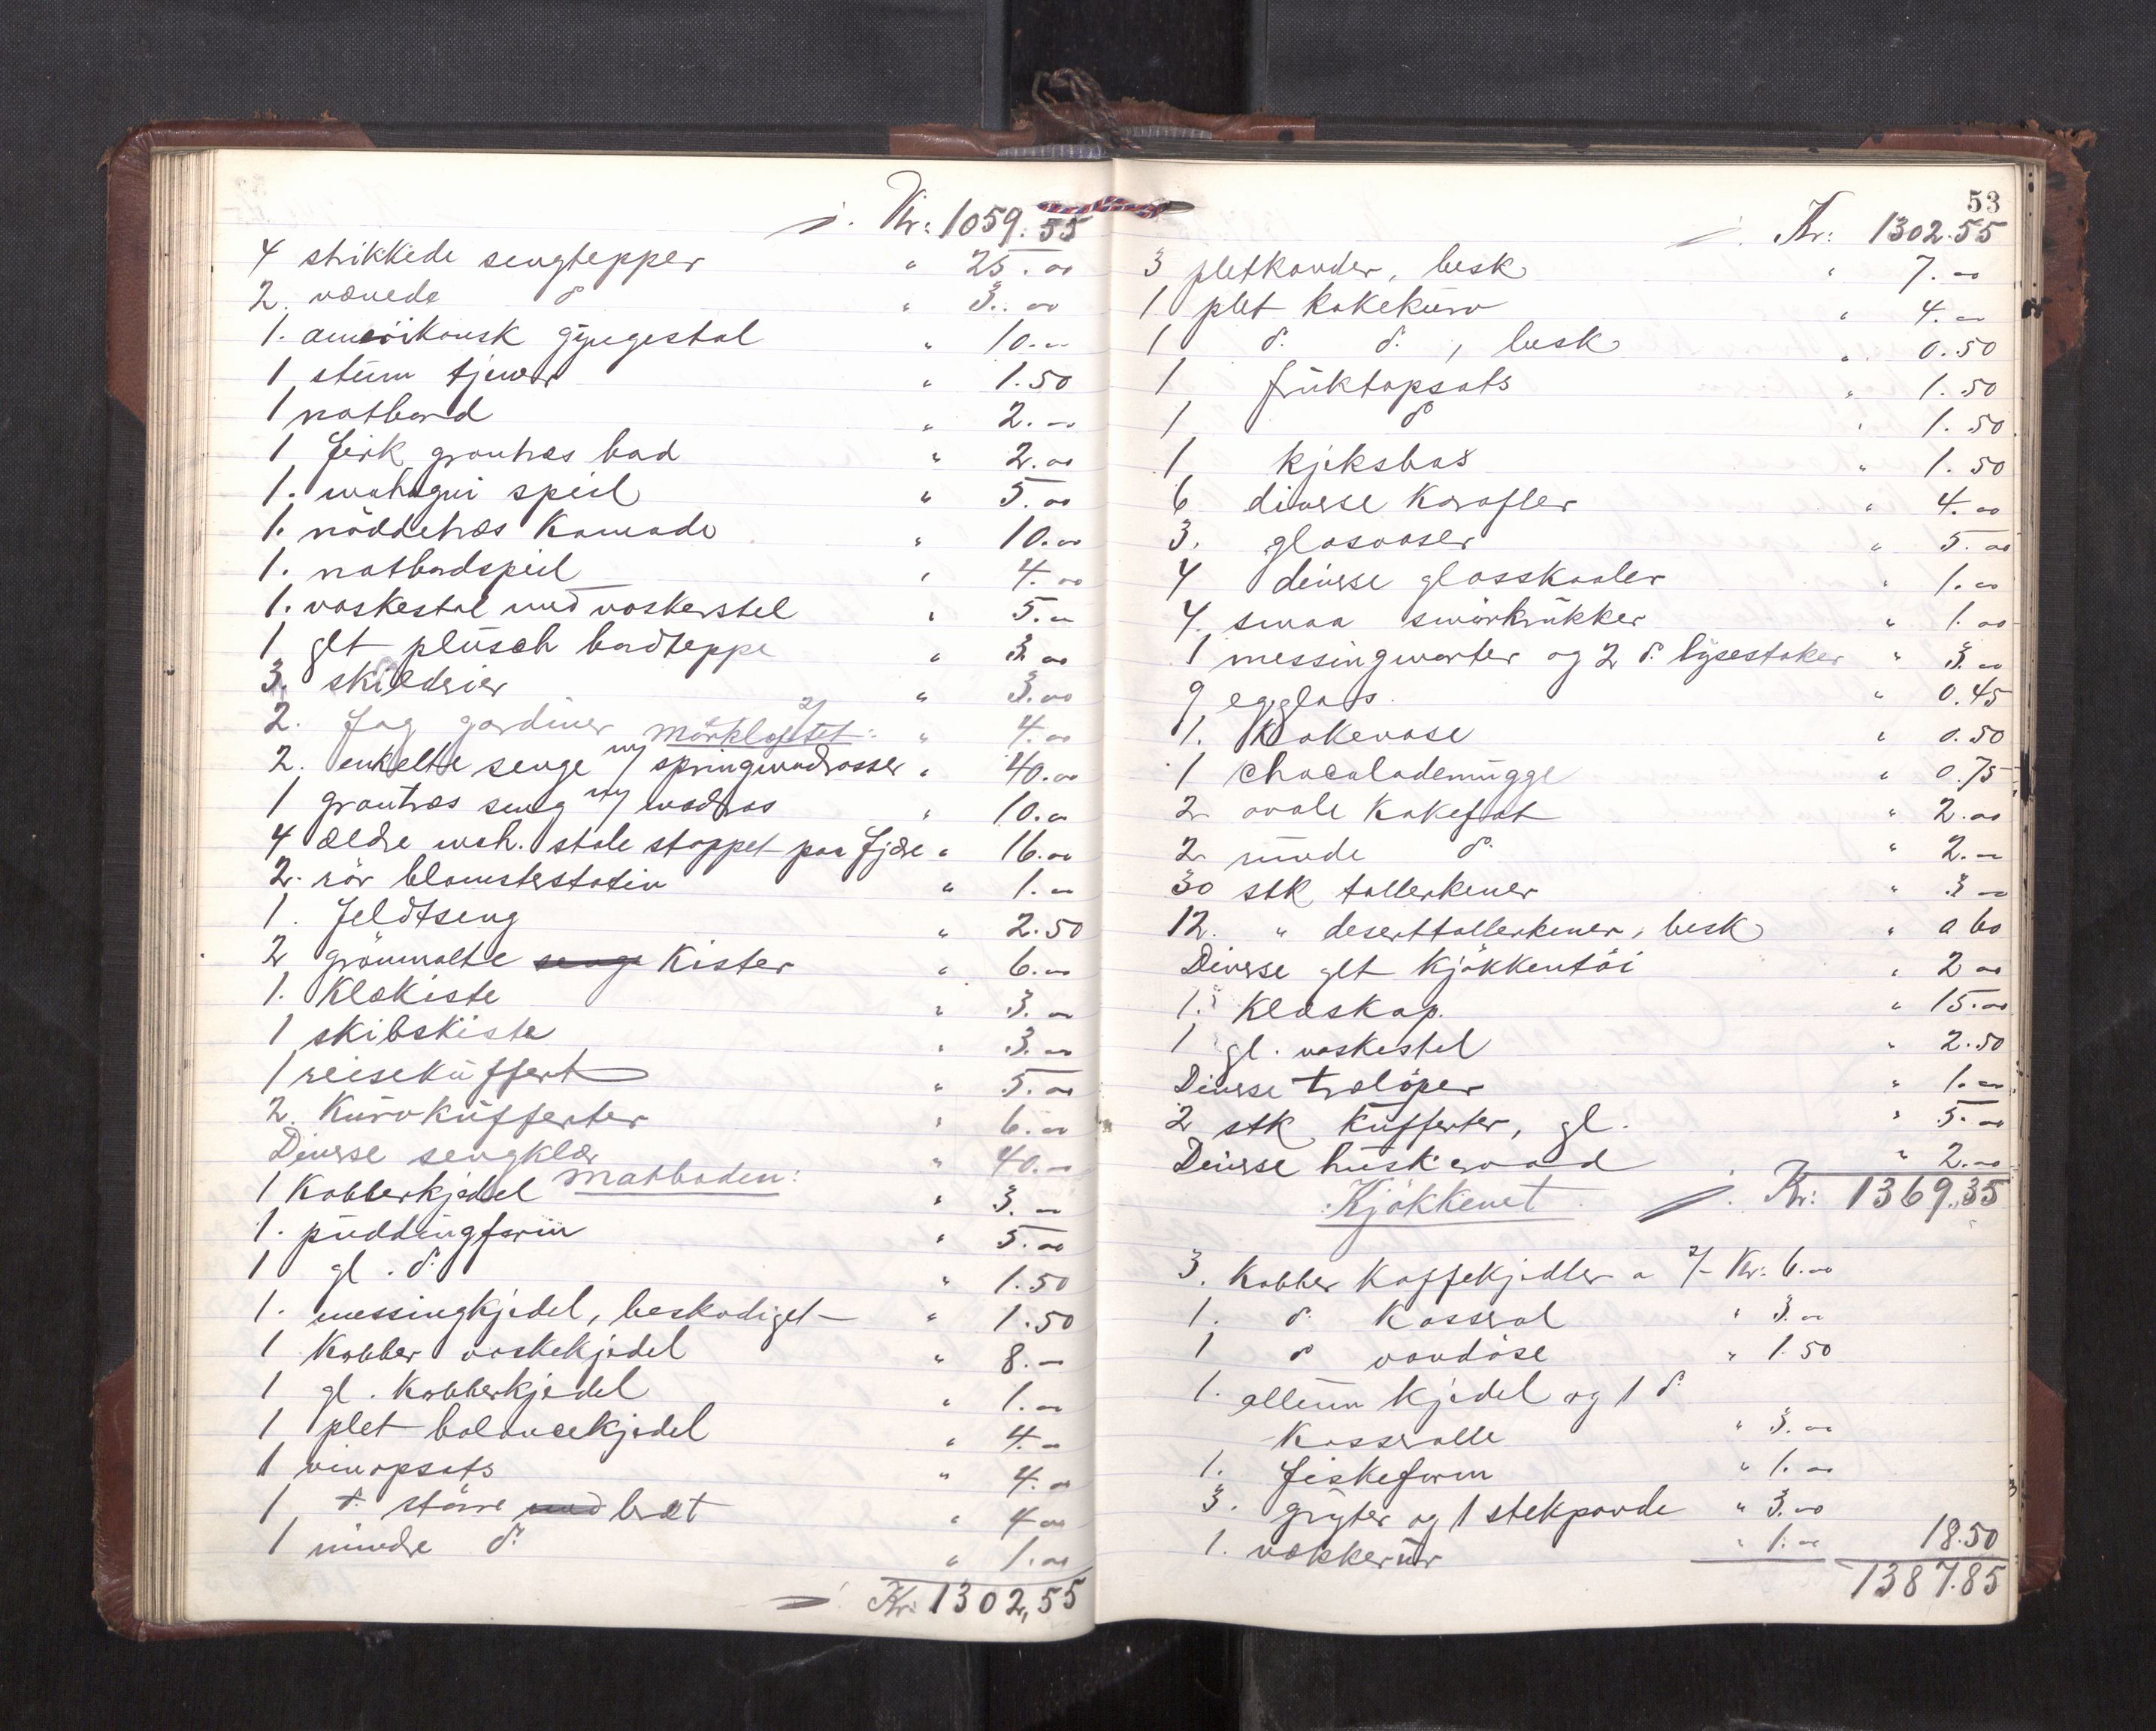 Kr: 1059.55
4 strikkede sengtepper " 25.00
2. vævede do " 3.00
1. amerikansk gyngestol " 10.00
1 stum tjener " 1.50
1 natbord " 2.00
1 firk. grantræs bord " 2.00
1. mahogni speil " 5.00
1. nöddetræs Komode " 10.00
1. natbordspeil " 4.00
1. vaskestol med vaskerstel " 5.00
1 glt plüsch bordteppe " 3.00
3. skilderier " 3.00
2. fag gardiner " 4.00
mörkloftet:
2. enkelte senge m/ springmadrasser " 40.00
1 grantræs seng m/ madras " 10.00
4 ældre mah. stole stoppet paa fjær " 16.00
2. rör blomsterstativ " 1.00
1. feldtseng " 2.50
2 grönmalte senge Kister " 6.00
1. Klækiste " 3.00
1 skibskiste " 3.00
1 reisekuffert " 5.00
2. Kurvkufferter " 6.00
Diverse sengklær " 40.00
Matboden:
1 Kobberkjedel " 3.00
1. puddingform " 5.00
1 gl. do " 1.50
1. messingkjedel, beskadiget " 1.50
1 Kobber vaskekjedel " 8.00
1 gl. Kobberkjedel " 1.00
1 plet balancekjedel " 4.00
1 vinopsats " 4.00
1 do större med bræt " 4.00
1 mindre do " 1.00
Kr: 1302,55
53
Kr: 1302.55
3 pletkander, besk " 7.00
1 plet kakekurv " 4.00
1 do do, besk " 0.50
1 fruktopsats " 1.50
1 do " 1.50
1 kjeksbox " 1.50
6 diverse Karafler " 4.00
3. glasvaser " 5.00
4 diverse glasskaaler " 1.00
4. smaa smörkrukker " 1.00
1 messingmorter og 2 do lysestaker " 3.00
9 eggglas " 0.45
1. Kakevase " 0.50
1 Chocolademugge " 0.75
2 ovale Kakefat " 2.00
2 runde do " 2.00
30 stk tallerkener " 3.00
12. " deserttallerkener, besk " 0 60
Diverse glt Kjökkentöi " 2 00
1. Klæskap. " 15.00
1 gl. vaskestel " 2.50
Diverse trælöper " 1.00
2 stk Kufferter, gl. " 5.00
Diverse huskeraad " 2.00
Kr: 1369.35
Kjökkenet
3. Kobber Kaffekjedler a 2/- Kr: 6.00
1. do Kasserol " 3.00
1 do vandöse " 1.50
1. allum kjedel og 1 do
Kasserolle " 3.00
1. fiskeform " 1.00
3. gryter og 1 stekpande " 3.00
1. vækkerur " 1.00 18.50
1387.85